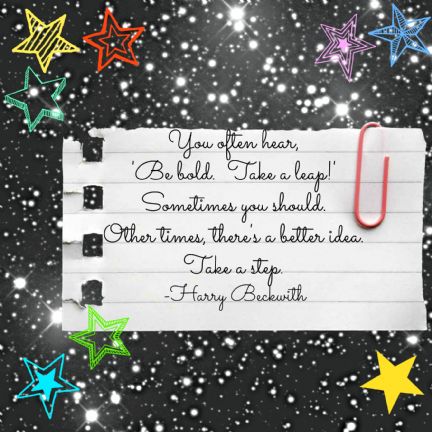 You often hear,
'Be bold. Take a leap!'
Sometimes you should.
Other times, there's a better idea.
Take a step.
-Harry Beckwith